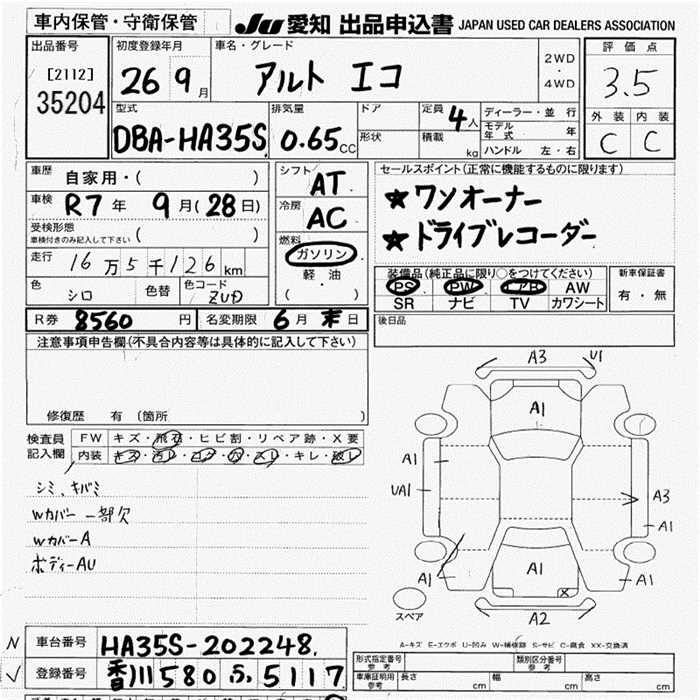 車内保管・守衛保管
JU 愛知 出品申込書 JAPAN USED CAR DEALERS ASSOCIATION
出品番号
[2112]
35204
初度登録年月
26 9月
車名・グレード
アルト エコ
2WD
・
4WD
評価点
3.5
外装 内装
C C
型式
DBA-HA35S
排気量
0.65cc
ドア
形状
定員 4人
積載 kg
ディーラー・並行
モデル年式 年
ハンドル 左・右
車歴 自家用・( )
車検 R7年 9月(28日)
受検形態
車検付きのみ記入して下さい ( )
走行 16万5千126km
色 シロ 色替 色コード ZUD
シフト AT
冷房 AC
燃料
ガソリン
軽・油
( )
セールスポイント(正常に機能するものに限ります)
★ワンオーナー
★ドライブレコーダー
装備品(純正品に限り○をつけてください)
PS PW エアB AW
SR ナビ TV カワシート
新車保証書
有・無
R券 8560円 名変期限 6月 末日
後日品
注意事項申告欄(不具合内容等は具体的に記入して下さい)
修復歴 有 (箇所 )
検査員記入欄
FW キズ・飛石・ヒビ割・リペア跡・X要
内装 キズ・汚レ・コゲ・穴・スレ・キレ・破レ
シミ、キバミ
Wカバー 一部欠
WカバーA
ボディーAU
A3 U1
A1
A1
UA1
A3
A1
A1
A1
A1
A2
スペア
A-キズ E-エクボ U-凹み W-補修跡 S-サビ C-腐食 XX-交換済
車台番号 HA35S-202248
登録番号 香川 580 ふ 5117
形式指定番号
参考
類別区分番号
参考
車庫証明用
参考
長さ cm
幅 cm
高さ cm